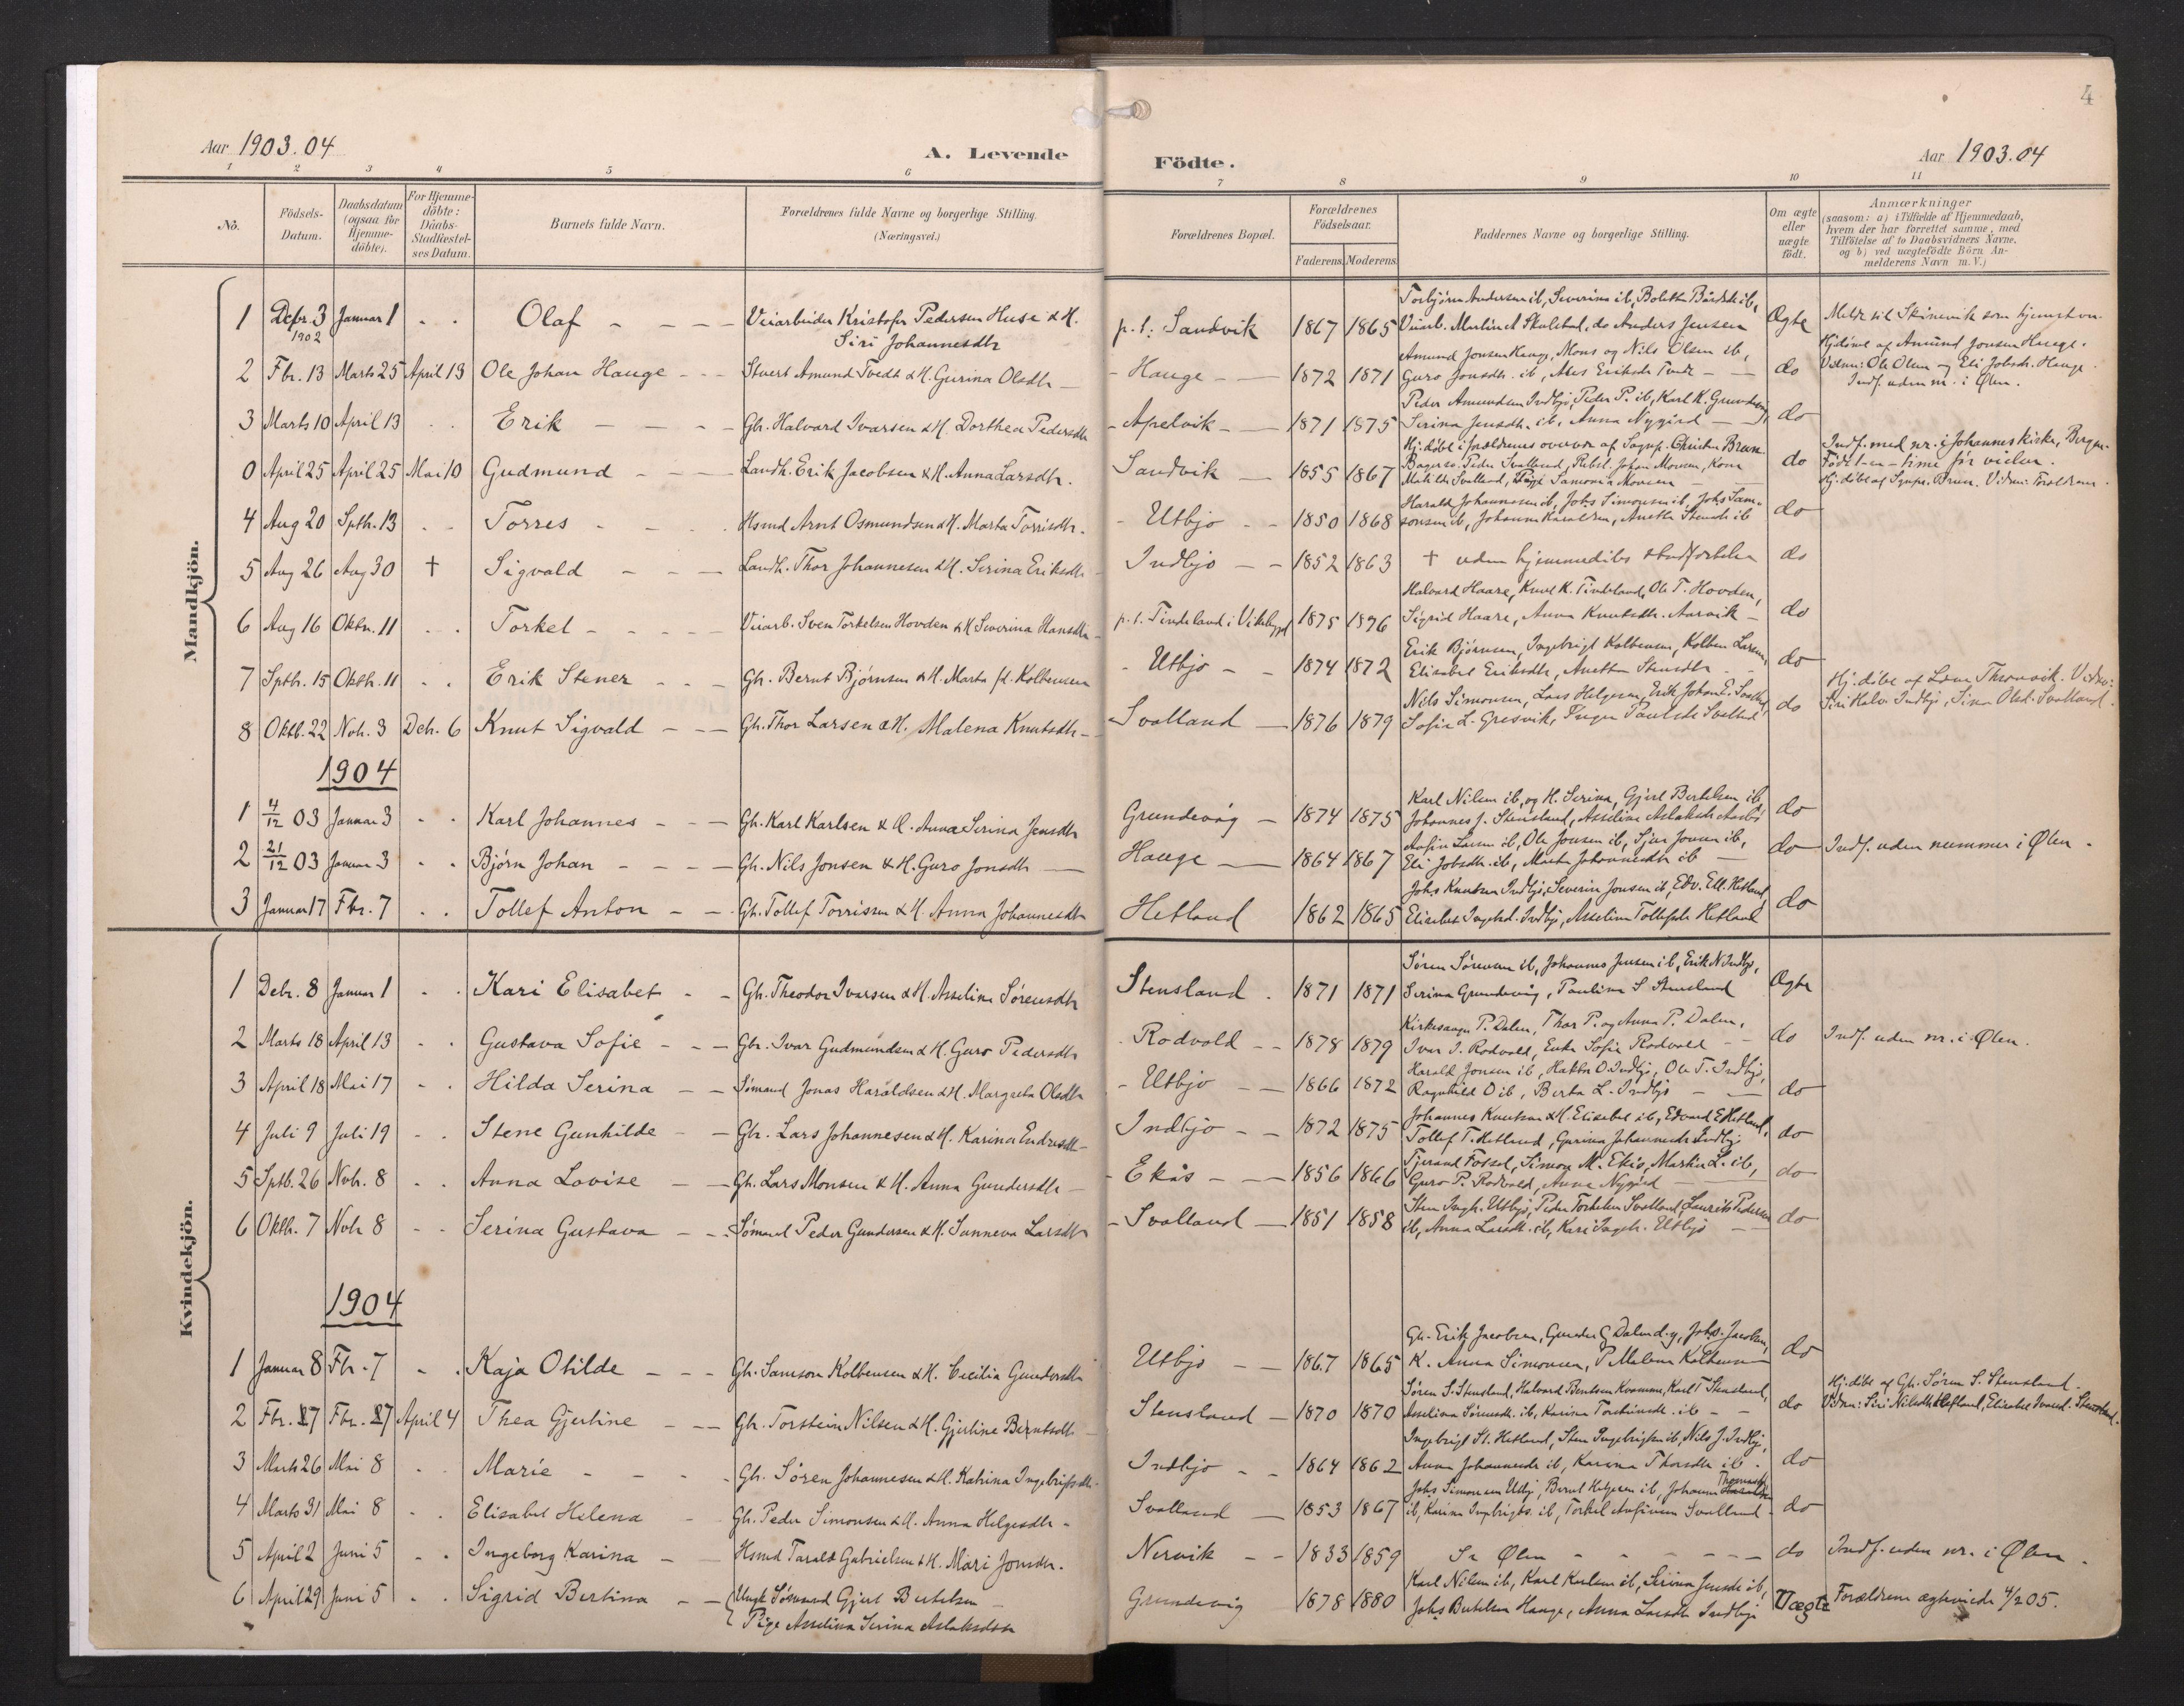 4
Aar 1903.04
A. Levende
Födte.
Aar 1903.04
1 2 3 4 5 6 7 8 9 10 11
No.
Födsels-Datum.
Daabsdatum (ogsaa for Hjemme-döbte).
For Hjemme-döbte: Daabs-Stadfæstel-ses Datum.
Barnets fulde Navn.
Forældrenes fulde Navne og borgerlige Stilling. (Næringsvei.)
Forældrenes Bopæl.
Forældrenes Födselsaar.
Faderens. Moderens.
Faddernes Navne og borgerlige Stilling.
Om ægte eller uægte födt.
Anmærkninger (saasom: a) i Tilfælde af Hjemmedaab, hvem der har forrettet samme, med Tilföielse af to Daabsvidners Navne, og b) ved uægtefödte Börn An-melderens Navn m.V.)
Mandkjön.
1 Decbr. 3 1902 Januar 1 Olaf Veiarbeider Kristofer Pedersen Huse & H. Siri Johannesdtr p.t. Sandvik 1867 1865 Torbjørn Andersen ib, Severine ib,
Veiarb. Martin A Skulstad, do Anders Jensen Ægte
2 Fbr. 13 Marts 25 April 13 Ole Johan Hauge Stuert Amund Tvedt & H. Gurina Olsdtr Hauge 1872 1871 Amund Jonsen Hauge, Mons og Nils Olsen ib,
Guro Jonsdtr. ib, do Hjdöbt af Amund Jonsen Hauge.
Vidner: Ole Olsen og Eli Jobsdr. Hauge
Indf. uden nr. i Ølen.
3 Marts 10 April 13 Erik Gbr. Halvard Ivarsen & H. Dorthea Pedersdtr Apelvik 1871 1875 Peder Amundsen Indbjo, Peder P. ib, Karl K. Grundevåg
Serina Jensdtr. ib, Anna Nygård do
0 April 25 April 25 Mai 10 Gudmund Landh. Erik Jacobsen & H. Anna Larsdtr. Sandvik 1855 1867 Hj. döbt i forældrenes overvær af Sognep. Christen Brun
Peder Svalland, Johan Monsen, Kone
Matilde Svalland, Pige Samonia Monsen do Indf. med nr. i Johanneskirke, Bergen.
Hj. döbt af Sognepr. Brun. Vidner: Forældrene.
4 Aug 20 Sptb. 13 Torres Hsmd Arnt Osmundsen & H. Marta Torrisdtr. Utbjo 1850 1868 Harald Johannesen ib, Johs Simonsen ib, Johs Sam-
sonsen ib, Johanna Haraldsen, Anetta Stensdtr ib do
5 Aug 26 Aug 30 † Sigvald Landh. Thor Johannesen & H. Serina Eriksdtr Indbjo 1852 1863 † uden hjemmedåbs stadfæstelse do
6 Aug 16 Oktbr. 11 Torkel Veiarb. Sven Torkelsen Hovden & H Severina Hansdtr p.t. Tindeland i Vikebygd 1875 1876 Halvard Haare, Knut K. Tindeland, Ole T. Hovden,
Sigrid Haare, Anna Knutsdtr. Aarvik do
7 Sptb. 15 Oktb. 11 Erik Stener Gbr. Bernt Bjørnsen & H. Marta f. Kolbensen Utbjo 1874 1872 Erik Bjørnsen, Ingebrigt Kolbensen, Kolben Larsen,
Elisabet Eriksdtr, Anetta Stensdtr do
8 Oktb. 22 Nob. 3 Deb. 6 Knut Sigvald Gbr. Thor Larsen & H. Malena Knutsdtr Svalland 1876 1879 Nils Simonsen, Lars Helgesen, Erik Johan E. Svalland
Sofie L. Gresvik, Inger Paulsdtr Svalland do Hj. döbt af Lene Thronvik. Vidner:
Siri Halv. Indbjo, Sina Olsd. Svalland.
1904
1 4/12 03 Januar 3 Karl Johannes Gbr. Karl Karlsen & H. Anna Serina Jensdtr Grundevåg 1874 1875 Karl Nilsen ib, og H. Serina, Gjert Bertelsen ib
Johannes J. Stensland, Asseline Aslaksdtr do
2 21/12 03 Januar 3 Bjørn Johan Gbr. Nils Jonsen & H. Guro Jonsdtr Hauge 1864 1867 Anfin Larsen ib, Ole Jonsen ib, Sjur Jonsen ib,
Eli Jobsdtr. ib, Marta Johannesdtr ib do Indf. uden nummer i Ølen.
3 Januar 17 Fbr. 7 Tollef Anton Gbr. Tollef Torrisen & H. Anna Johannesdtr Hetland 1862 1865 Johs Knutsen Indbjo, Severin Jonsen ib, Edv. Ell. Hetland,
Elisabet Ingebd. Indbjo, Asseline Tollefsdtr Hetland do
Kvindekjön.
1 Debr. 8 Januar 1 Kari Elisabet Gbr. Theodor Ivarsen & H. Asseline Sørensdtr Stensland 1871 1871 Søren Sørensen ib, Johannes Jensen ib, Erik N Indbjo,
Serina Grundevåg, Pauline S Stensland Ægte
2 Marts 18 April 13 Gustava Sofie Gbr. Ivar Gudmundsen & H. Guro Pedersdtr Rodvold 1878 1879 Kirkesanger P. Dalen, Thor P. og Anna P. Dalen,
Iver I. Rodvold, Enke Sofie Rodvold do Indf. uden nr. i Ølen.
3 April 18 Mai 17 Hilda Serina Sömand Jonas Haraldsen & H. Margreta Olsdtr Utbjo 1866 1872 Harald Jonsen ib, O. Indbjo, Ole T. Indbjo,
Ragnhild O ib, Berta L. Indbjo do
4 Juli 9 Juli 19 Stene Gunhilde Gbr. Lars Johannesen & H. Karina Endresdtr Indbjo 1872 1875 Johannes Knutsen & H. Elisabet ib, Edvard E Hetland,
Tollef T. Hetland, Gurina Johannesdtr Indbjo do
5 Sptb. 26 Novb. 8 Anna Lovise Gbr. Lars Monsen & H. Anna Gundersdtr Ekås 1856 1866 Tjerand Fossel, Simon M. Ekås, Martin L. ib,
Guro P. Rodvold, Anna Nygård do
6 Oktb. 7 Novb 8 Serina Gustava Sömand Peder Gundersen & H. Sunneva Larsdtr Svalland 1851 1858 Sten Ingb. Utbjo, Peder Torkelsen Svalland, Laurits Pedersen
ib, Anna Larsdtr. ib, Kari Ingebr. Utbjo do
1904
1 Januar 8 Fbr. 7 Kaja Otilde Gbr. Samson Kolbensen & H. Cecilia Gundersdtr Utbjo 1867 1865 Gbr. Erik Jacobsen, Gunder G Dale, Johs. Jacobsen,
K. Anna Simonsen, P Malena Kolbensen do
2 Fbr. 27 Fbr. 27 April 4 Thea Gjertine Gbr. Torstein Nilsen & H. Gjertine Berntsdtr Stensland 1870 1870 Søren S. Stensland, Halvard Bentsen Kvamme, Karl T Stensland,
Asseline Sørensdtr. ib, Karina Torsteinsdtr. ib do Hj. döbt af Gbr. Søren S. Stensland.
Vidner: Siri Nilsdtr Hetland, Elisabet Ivarsd. Stensland.
3 Marts 26 Mai 8 Marie Gbr. Søren Johannesen & H. Katrina Ingebrigtsdtr Indbjo 1864 1862 Ingebrigt St. Hetland, Sten Ingebrigtsen ib, Nils J. Indbjo,
Anna Johannesdtr ib, Karina Thorsdtr ib. do
4 Marts 31 Mai 8 Elisabet Helena Gbr. Peder Simonsen & H. Anna Helgesdtr Svalland 1853 1867 Johs Simonsen Utbjo, Bernt Helgesen ib, Johanna
ib, Karina Ingebrigts. ib, Torkel Anfinsen Svalland do
5 April 2 Juni 5 Ingeborg Karina Hsmd Tarald Gabrielsen & H. Mari Jonsdtr. Nervik 1833 1859 Se Ølen do Indf. uden nr. i Ølen.
6 April 29 Juni 5 Sigrid Bertina Ungk. Sömand Gjert Bertelsen
Pige Asselina Serina Aslaksdtr Grundevåg 1878 1880 Karl Nilsen ib, Karl Karlsen ib, Serina Jensdtr ib,
Johs Bertelsen Hauge, Anna Larsdtr Indbjo Uægte Forældrene ægteviede 4/2 05.